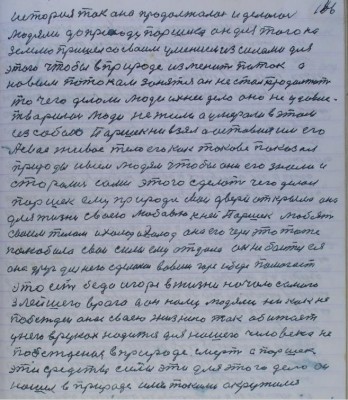 186
история так она продолжалась и делалась
людями до прихода Паршека он для того на
землю пришел со своим умением и с силами для
этого чтобы в природе изменить поток а
новым потоком занятся он не стал продолжать
то чего делали люди их дело оно не удовле-
творило люди не жили а умирали в этом
из собою Паршек ни взял а оставил им его
живое тело его как таковое показал
природы и всем людям чтобы они его знали и
старались сами этого сделать чего делал
Паршек ему природа свои двери открыла она
для жизни своего любовью к ней Паршек любит
своим телом и холод и холод она его через это тоже
полюбила свои силы ему отдала он не боится ея
она друг для него сделался во всем горе и беде помогает
это есть беда и горе в жизни начало самого
злейшего врага а он каму людями ни как не
побежден она своею жизнею так обитает
у него в руках надится для нашего человека не
побежденая в природе смерть а Паршек
эти средства силы эти для этого дела он
нашел в природе ими такими окружился